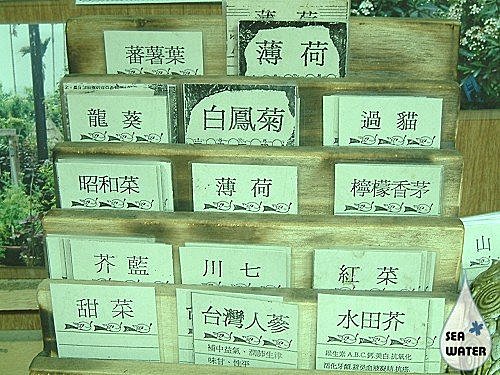 薄荷
蕃薯葉
薄荷
龍葵
白鳳菊
過貓
昭和菜
薄荷
檸檬香茅
芥藍
川七
紅菜
山
甜菜
台灣人蔘
補中益氣、潤肺生津
味甘、性平
水田芥
維生素A.B.C,鈣,美白,抗氧化
SEA
WATER